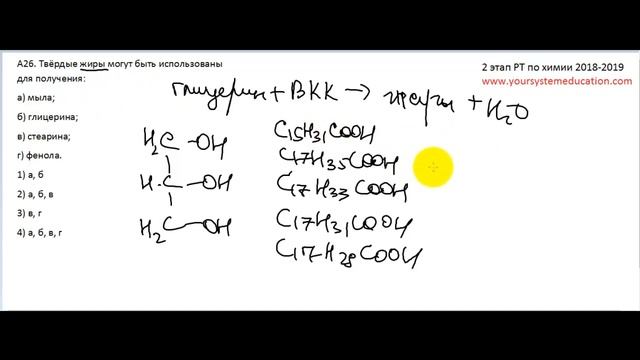 А26. Твёрдые жиры могут быть использованы
для получения:
а) мыла;
б) глицерина;
в) стеарина;
г) фенола.
1) а, б
2) а, б, в
3) в, г
4) а, б, в, г
2 этап РТ по химии 2018-2019
www.yoursystemeducation.com
глицерин + ВКК → жиры + H2O
H2C - OH
H-C - OH
H2C - OH
C15H31COOH
C17H35COOH
C17H33COOH
C17H31COOH
C17H29COOH